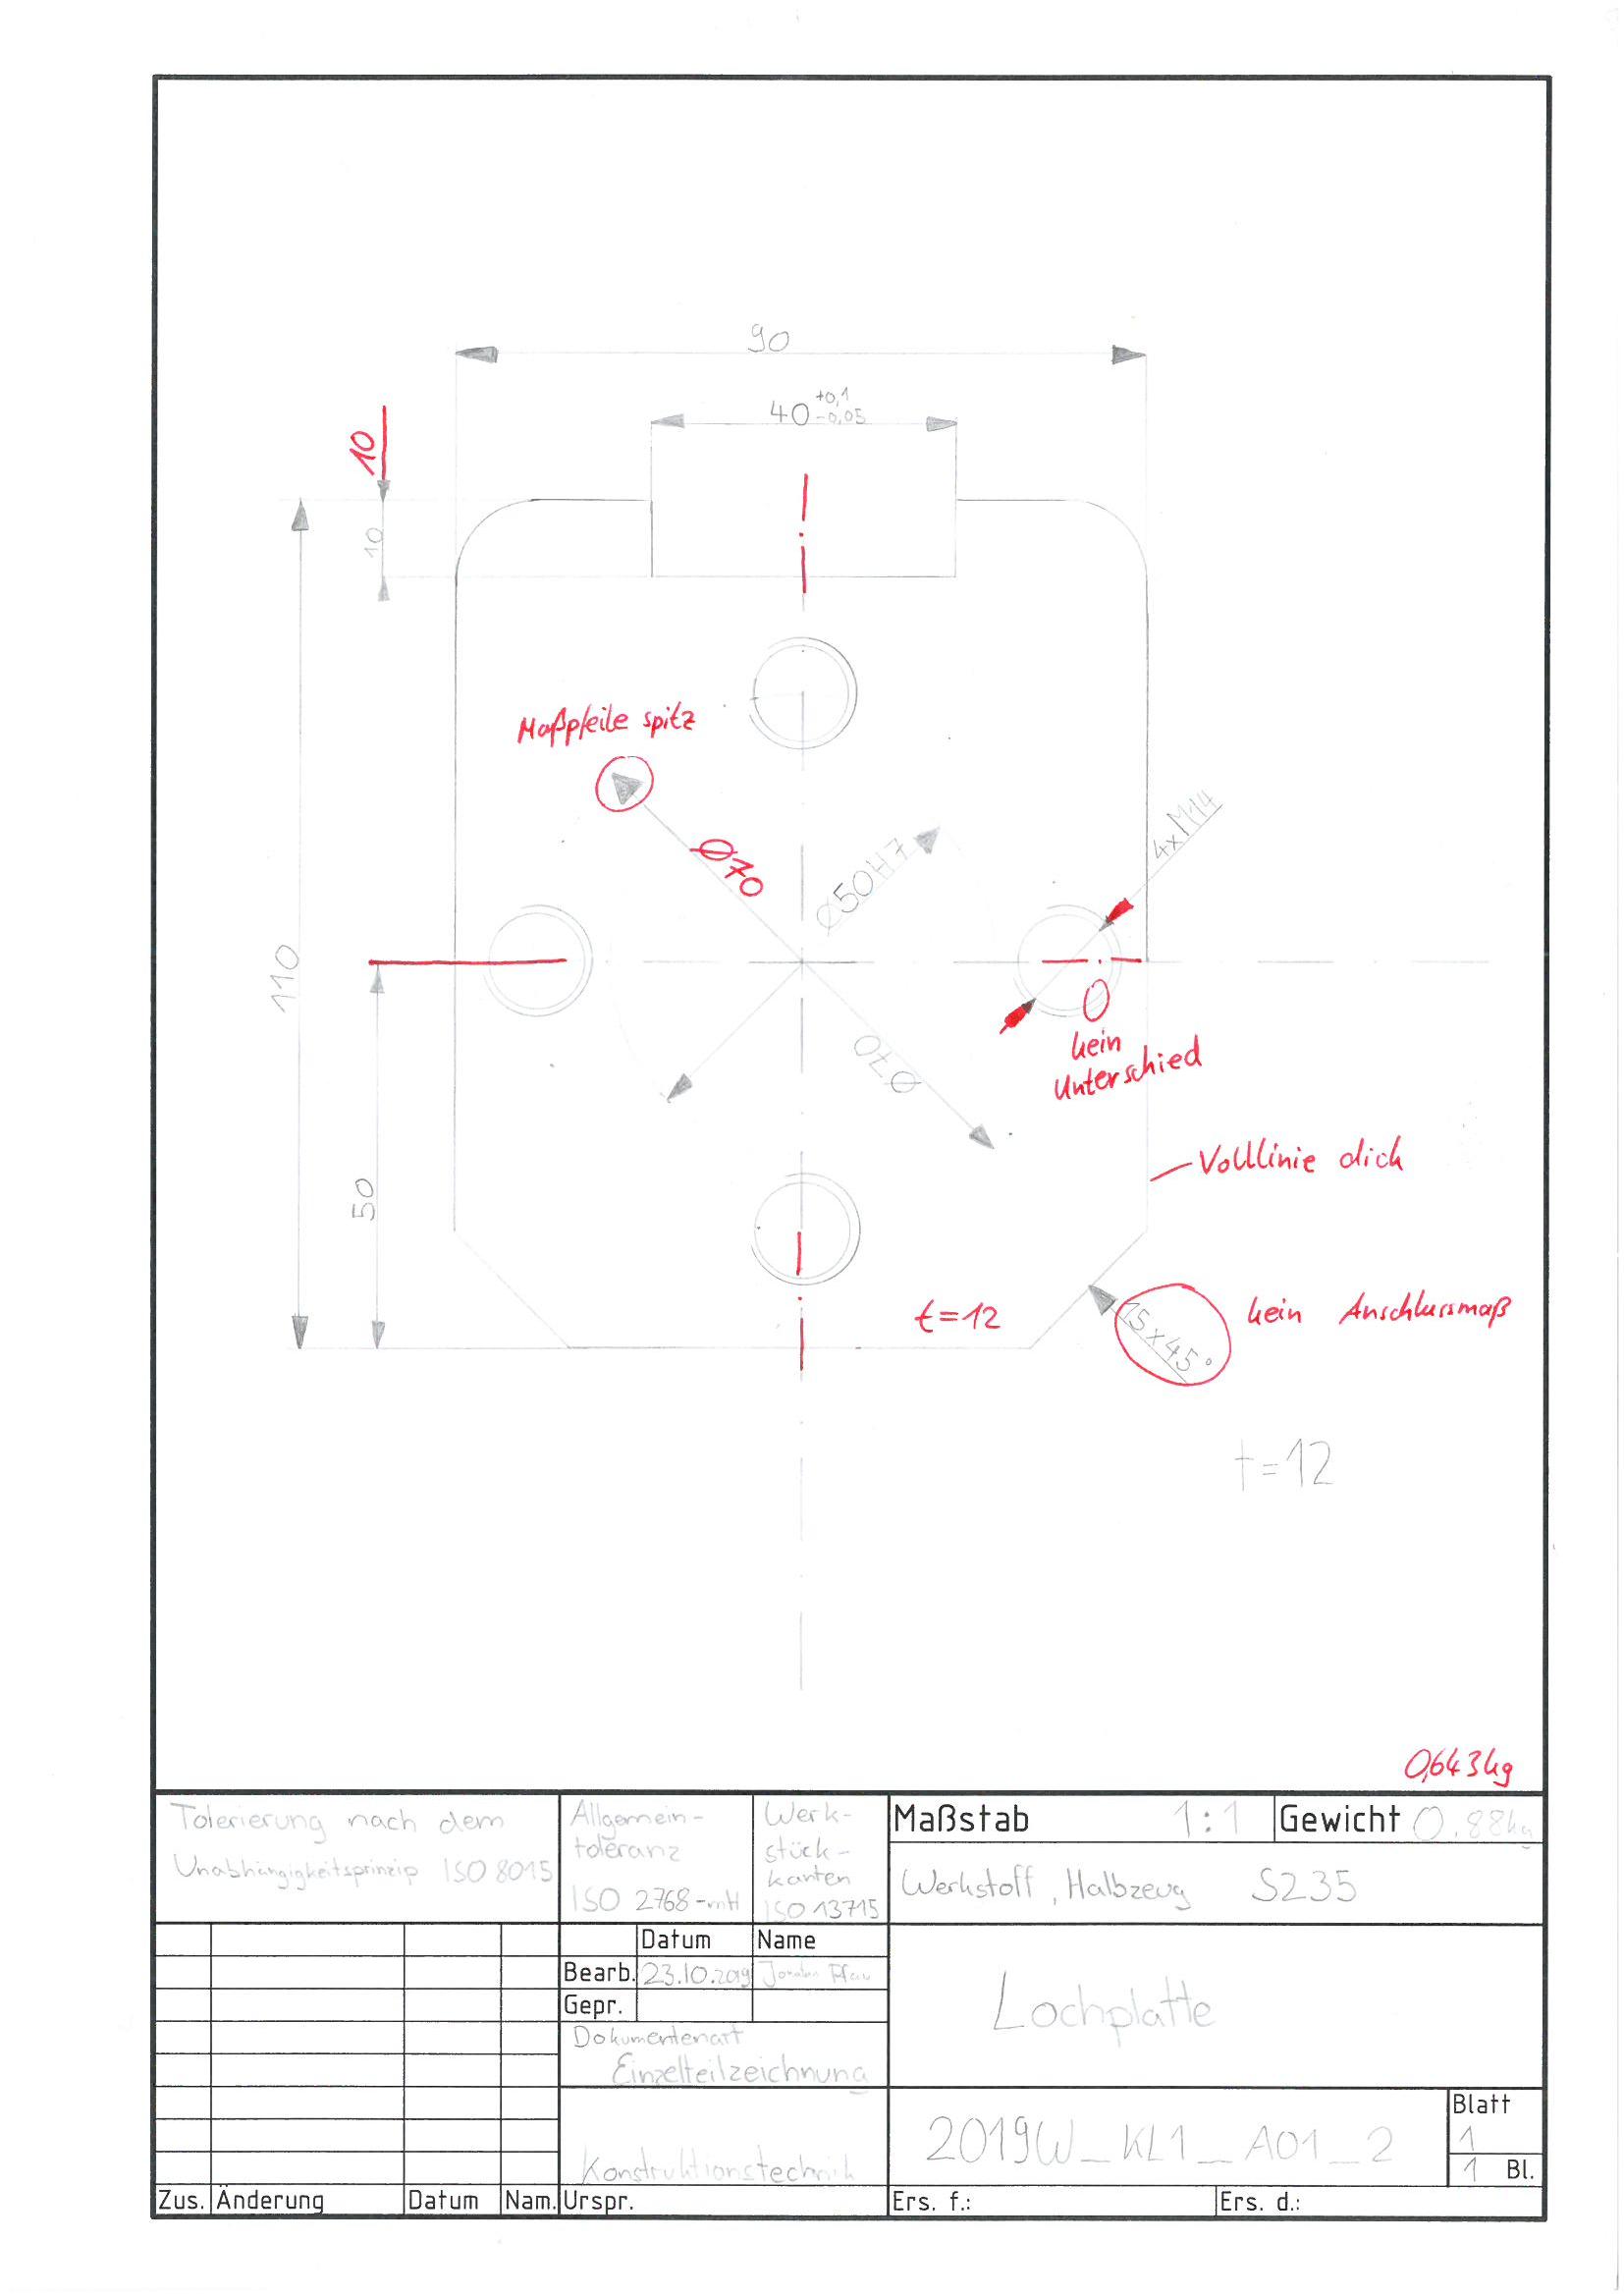 90
40 +0,1 -0,05
10
10
Maßpfeile spitz
4xM14
Ø70
Ø50H7
110
0
kein
Unterschied
Ø70
Volllinie dick
50
t=12
15x45°
kein Anschlussmaß
t=12
0,643kg
Tolerierung nach dem
Unabhängigkeitsprinzip ISO 8015
Allgemein-
toleranz
ISO 2768-mH
Werk-
stück-
kanten
ISO 13715
Maßstab 1:1
Gewicht 0.88kg
Werkstoff, Halbzeug S235
Datum Name
Bearb. 23.10.2019
Gepr.
Dokumentenart
Einzelteilzeichnung
Lochplatte
Konstruktionstechnik
2019W_KL1_A01_2
Blatt
1
1 Bl.
Zus. Änderung Datum Nam. Urspr. Ers. f.: Ers. d.: